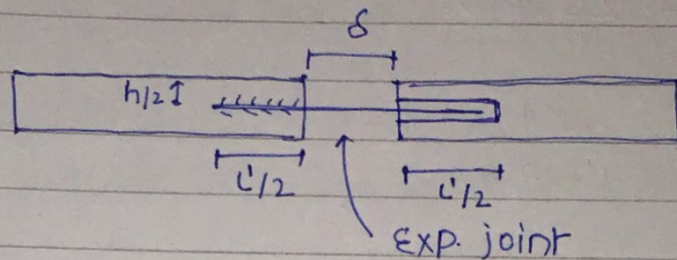 δ
h/2
L'/2
L'/2
Exp. joint